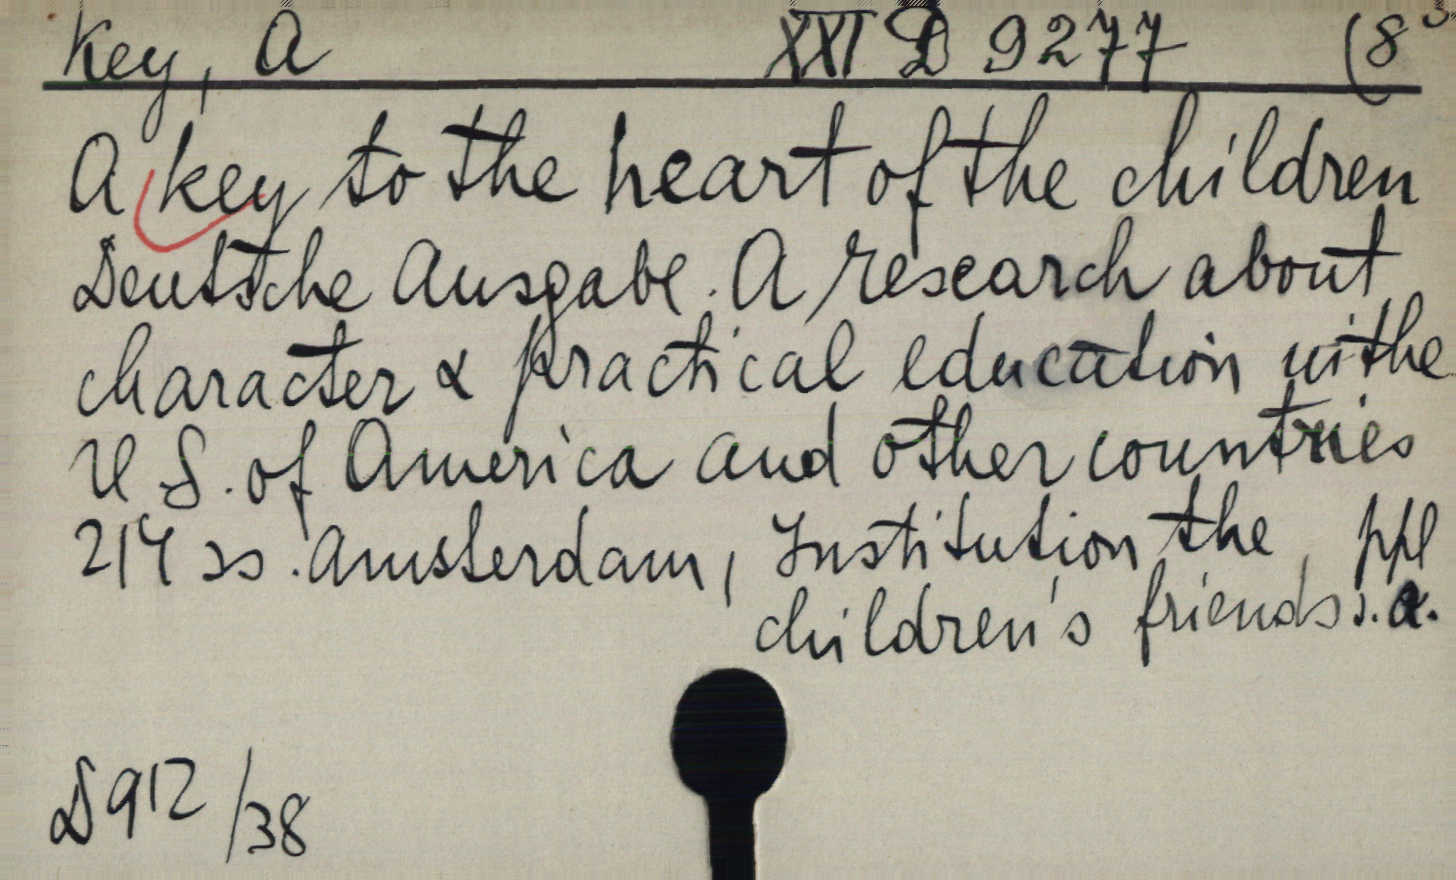 Key, A XXI D 9277 (8°
A key to the heart of the children
Deutsche Ausgabe. A research about
character & practical education in the
U S. of America and other countries
214 ss. Amsterdam, Institution the
children's friends s.a.
D 912/38